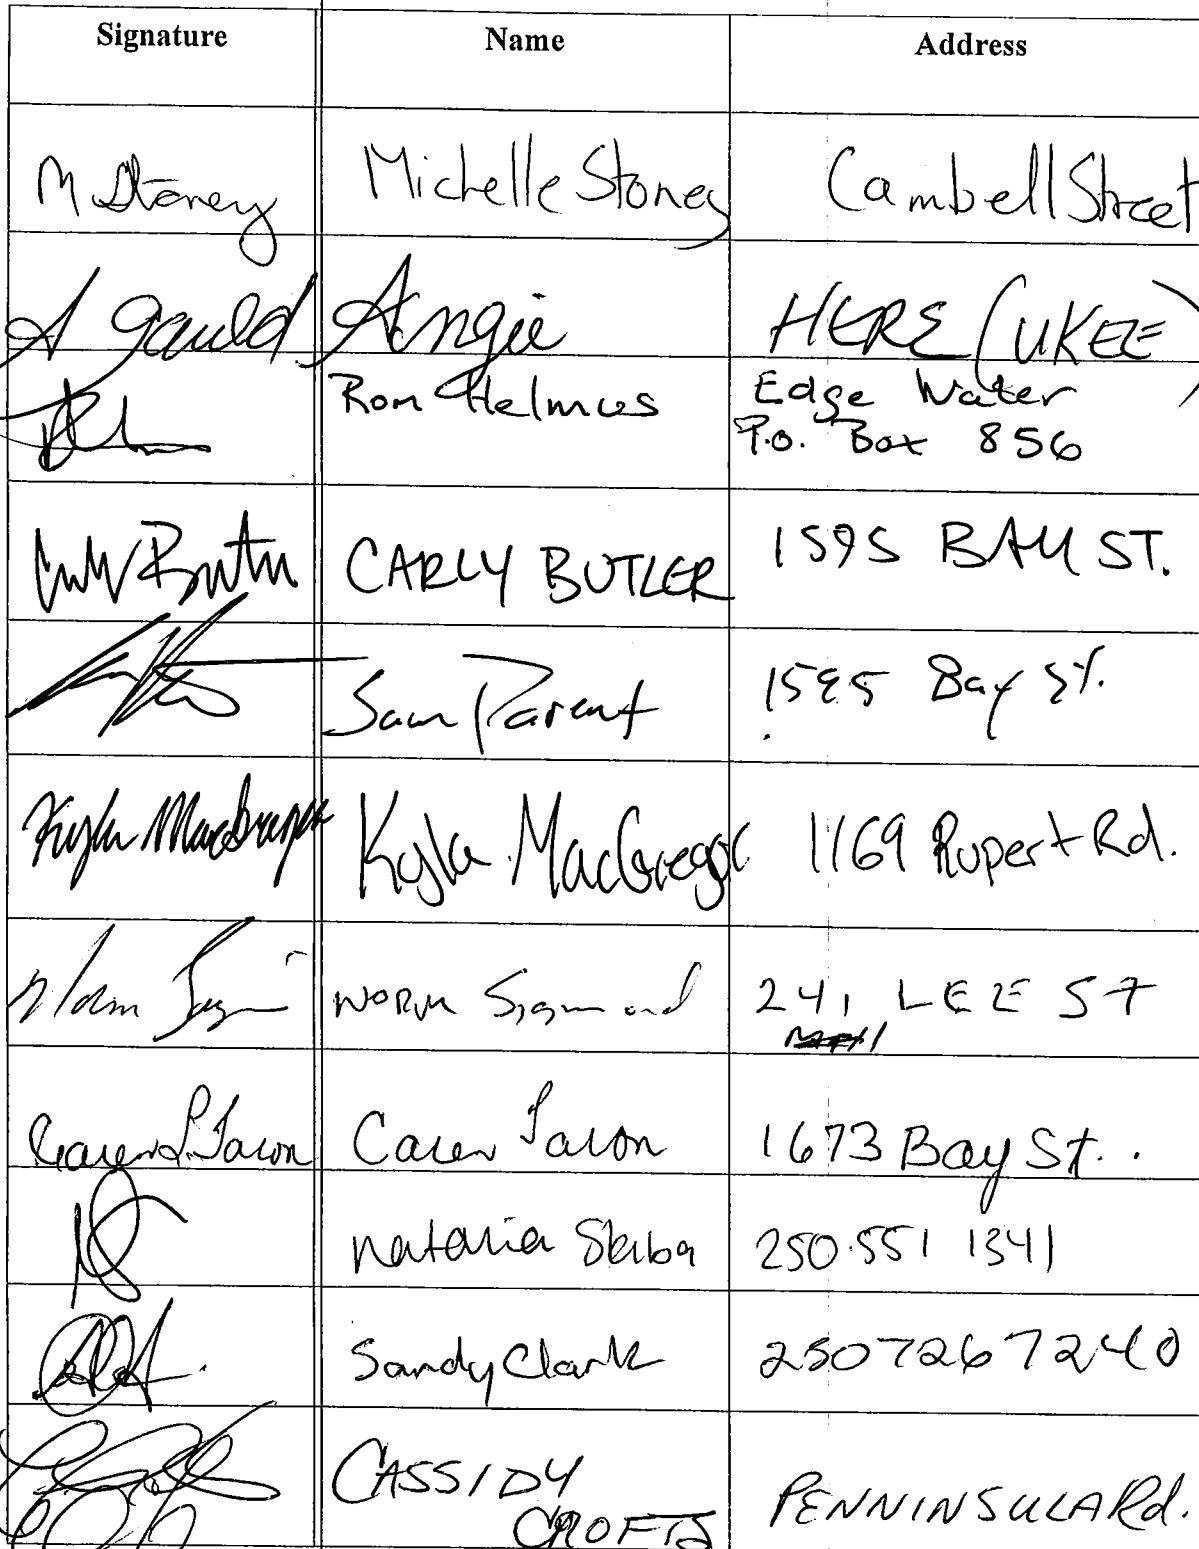 Signature Name Address
M Stoney Michelle Stoney Cambell Street
A Gauld Angie HERE (UKEE)
Ron Helmus Edge Water
P.O. Box 856
CARLY BUTLER 1595 BAY ST.
Sam Parent 1595 Bay St.
Kyla MacGregor Kyla MacGregor 1169 Rupert Rd.
Norm NORM Sigmund 241 LEE ST
Caren Caren 1673 Bay St.
Natalia Skiba 250.551 1341
Sandy Clark 2507267240
CASSIDY PENNINSULA Rd.
CROFTS